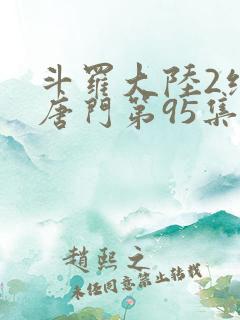 斗羅大陸2
唐門第95集
趙熙之
未经同意禁止转载